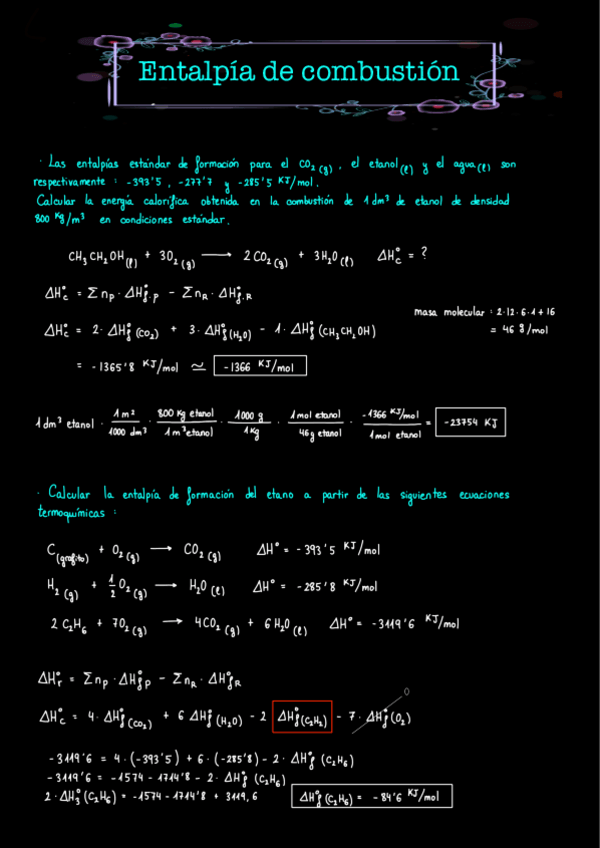 Entalpía de combustión
· Las entalpías estándar de formación para el CO₂ (g), el etanol (l) y el agua (l) son
respectivamente : -393'5 , -277'7 y -285'5 KJ/mol.
Calcular la energía calorífica obtenida en la combustión de 1 dm³ de etanol de densidad
800 Kg/m³ en condiciones estándar.
CH₃CH₂OH (l) + 3O₂ (g) ⟶ 2CO₂ (g) + 3H₂O (l) ΔH°c = ?
ΔH°c = Σnp · ΔH°f.p - ΣnR · ΔH°f.R
masa molecular : 2·12·6·1+16
ΔH°c = 2· ΔH°f (CO₂) + 3· ΔH°f (H₂O) - 1· ΔH°f (CH₃CH₂OH)
= 46 g/mol
= -1365'8 KJ/mol ≃ -1366 KJ/mol
1 dm³ etanol · 1 m³/1000 dm³ · 800 Kg etanol/1 m³ etanol · 1000 g/1Kg · 1 mol etanol/46g etanol · -1366 KJ/mol/1 mol etanol = -23754 KJ
· Calcular la entalpía de formación del etano a partir de las siguientes ecuaciones
termoquímicas :
C (grafito) + O₂ (g) ⟶ CO₂ (g) ΔH° = -393'5 KJ/mol
H₂ (g) + 1/2 O₂ (g) ⟶ H₂O (l) ΔH° = -285'8 KJ/mol
2 C₂H₆ + 7O₂ (g) ⟶ 4CO₂ (g) + 6H₂O (l) ΔH° = -3119'6 KJ/mol
ΔH°r = Σnp · ΔH°f P - ΣnR · ΔH°f R
0
ΔH°c = 4· ΔH°f (CO₂) + 6 ΔH°f (H₂O) - 2 ΔH°f (C₂H₂) - 7· ΔH°f (O₂)
-3119'6 = 4·(-393'5) + 6·(-285'8) - 2· ΔH°f (C₂H₆)
-3119'6 = -1574 - 1714'8 - 2· ΔH°f (C₂H₆)
2· ΔH°f (C₂H₆) = -1574 - 1714'8 + 3119,6 ΔH°f (C₂H₆) = -84'6 KJ/mol